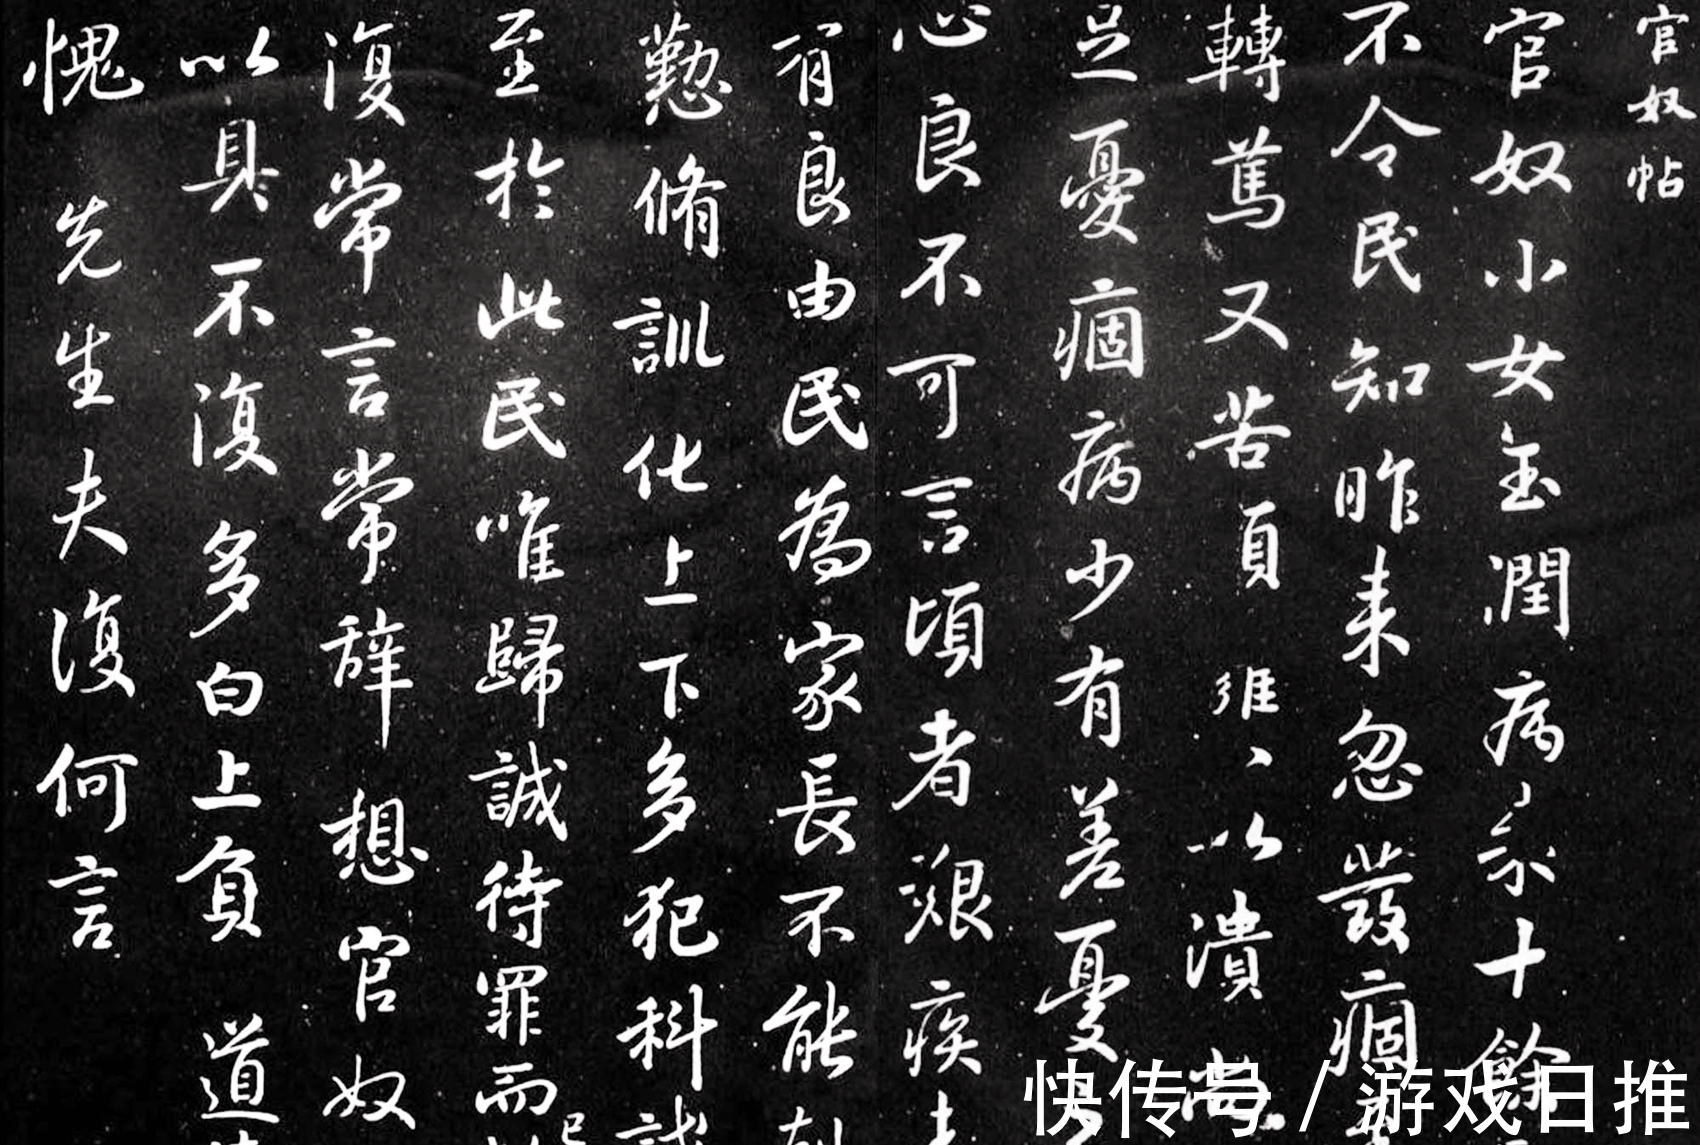 官奴帖
官奴小女玉潤病來十餘
不令民知昨来忽發痼
轉篤又苦頭癰、以潰尚
足憂痼病少有差憂
心良不可言頃者艱疾未
有良由民為家長不能剋
懃脩訓化上下多犯科誡
至於此民唯歸誠待罪而
復常言常辞想官奴
以具不復多白上負 道
愧 先生夫復何言
快传号/游戏日推